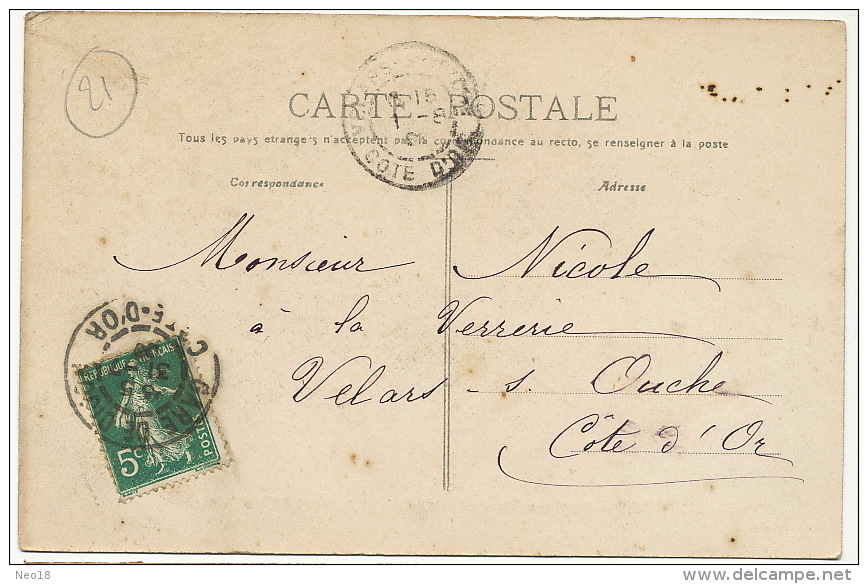 21
CARTE POSTALE
Tous les pays étrangers n'acceptent pas la correspondance au recto, se renseigner à la poste
Correspondance
Adresse
Monsieur Nicole
à la Verrerie
Velars-s. Ouche
Côte d'Or
CÔTE D'OR
15
CÔTE-D'OR
REPUBLIQUE FRANÇAISE
POSTES
5c
Neo18
www.delcampe.net